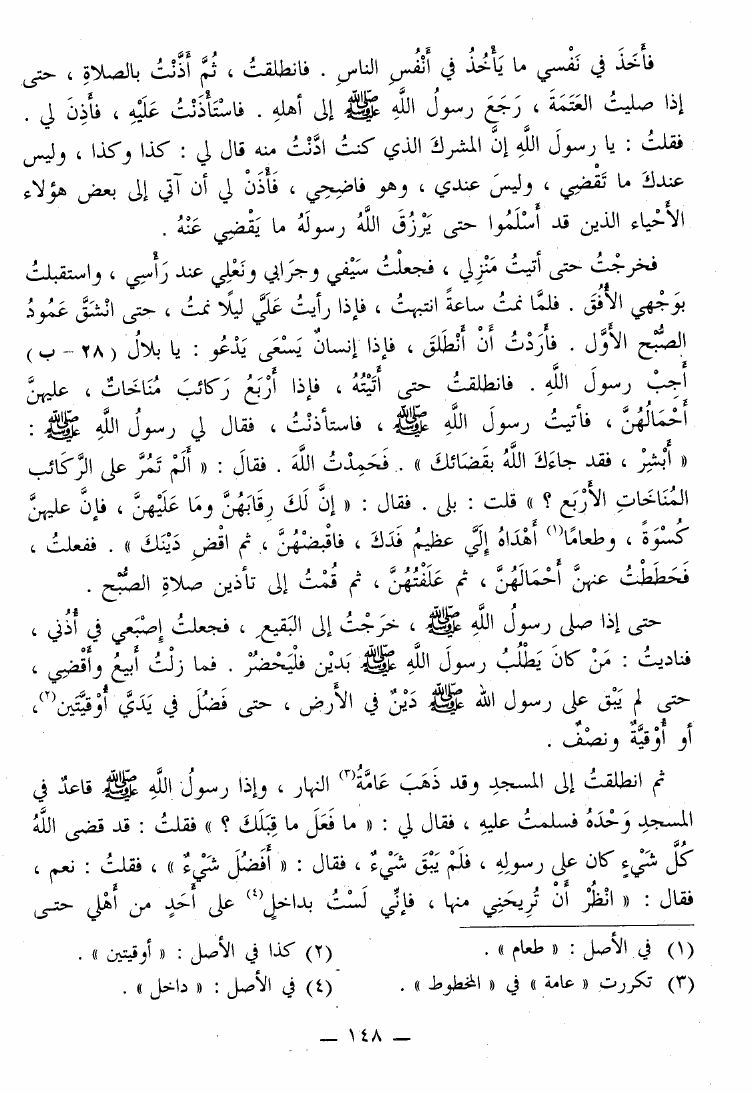 فأَخَذَ في نَفْسي ما يَأْخُذُ في أَنْفُسِ الناسِ . فانطلقتُ ، ثُمَّ أَذَّنْتُ بالصلاةِ ، حتى
إذا صليتُ العَتَمَةَ ، رَجَعَ رسولُ اللَّهِ ﷺ إلى أهلهِ . فاسْتَأْذَنْتُ عَلَيْهِ ، فأَذِنَ لي .
فقلتُ : يا رسولَ اللَّهِ إنَّ المشركَ الذي كنتُ ادَّنْتُ منه قال لي : كذا وكذا ، وليس
عندكَ ما تَقْضِي ، وليسَ عندي ، وهو فاضِحِي ، فَأْذَنْ لي أن آتي إلى بعض هؤلاء
الأَحْياءِ الذين قد أَسْلَمُوا حتى يَرْزُقَ اللَّهُ رسولَهُ ما يَقْضِي عَنْهُ .
فخرجْتُ حتى أتيتُ مَنْزِلي ، فجعلْتُ سَيْفي وجرَابي ونَعْلِي عند رَأْسِي ، واستقبلتُ
بوَجْهي الأُفُقَ . فلمَّا نمتُ ساعةً انتبهتُ ، فإذا رأيتُ عَلَيَّ ليلًا نمتُ ، حتى انْشَقَّ عَمُودُ
الصُّبْح الأَوَّل . فأَرَدْتُ أَنْ أَنْطَلقَ ، فإذا إنسانٌ يَسْعَى يَدْعُو : يا بلالُ ( ٢٨ – ب )
أَجِبْ رسولَ اللَّهِ . فانطلقتُ حتى أَتَيْتُهُ ، فإذا أَرْبَعُ رَكائبَ مُنَاخَاتٌ ، عليهنَّ
أَحْمَالُهُنَّ ، فأتيتُ رسولَ اللَّهِ ﷺ ، فاستأذنْتُ ، فقال لي رسولُ اللَّهِ ﷺ :
« أَبْشِرْ ، فقد جاءَكَ اللَّهُ بقَضَائكَ » . فَحَمِدْتُ اللَّهَ . فقالَ : « أَلَمْ تَمُرَّ على الرَّكائب
المُنَاخَاتِ الأَرْبَع ؟ » قلت : بلى . فقال : « إنَّ لَكَ رِقَابَهُنَّ ومَا عَلَيْهنَّ ، فإنَّ عليهنَّ
كُسْوَةً ، وطعامًا(١) أَهْدَاهُ إلَيَّ عظيمُ فَدَكَ ، فاقْبضْهُنَّ ، ثم اقْضِ دَيْنَكَ » . ففعلتُ ،
فَحَطَطْتُ عنهنَّ أَحْمَالَهُنَّ ، ثم عَلَفْتُهُنَّ ، ثم قُمْتُ إلى تأذين صلاةِ الصُّبْح .
حتى إذا صلى رسولُ اللَّهِ ﷺ ، خرَجْتُ إلى البَقيعِ ، فجعلتُ إصْبَعي في أُذُني ،
فناديتُ : مَنْ كانَ يَطْلُبُ رسولَ اللَّهِ ﷺ بدَيْن فلْيَحْضُرْ . فما زلْتُ أَبيعُ وأَقْضِي ،
حتى لم يَبْق على رسول الله ﷺ دَيْنٌ في الأَرض ، حتى فَضُلَ في يَدَيَّ أُوْقيَّتَين(٢)،
أو أُوْقيَّةٌ ونصْفٌ .
ثم انطلقتُ إلى المسجدِ وقد ذَهَبَ عَامَّةُ(٣) النهار ، وإذا رسولُ اللَّهِ ﷺ قاعدٌ في
المسجدِ وَحْدَهُ فسلمتُ عليهِ ، فقال لي : « ما فَعَلَ ما قِبَلَكَ ؟ » فقلتُ : قد قضى اللَّهُ
كُلَّ شَيْءٍ كان على رسولِهِ ، فلَمْ يَبْقَ شَيْءٌ ، فقال : « أَفَضُلَ شَيْءٌ » ، فقلتُ : نعم ،
فقال : « انْظُرْ أَنْ تُرِيحَنِي منها ، فإنِّي لَسْتُ بداخلٍ(٤) على أَحَدٍ من أَهْلي حتى
(١) في الأصل : « طعام » .
(٢) كذا في الأصل : « أوقيتين » .
(٣) تكررت « عامة » في « المخطوط » .
(٤) في الأصل : « داخل » .
– ١٤٨ –